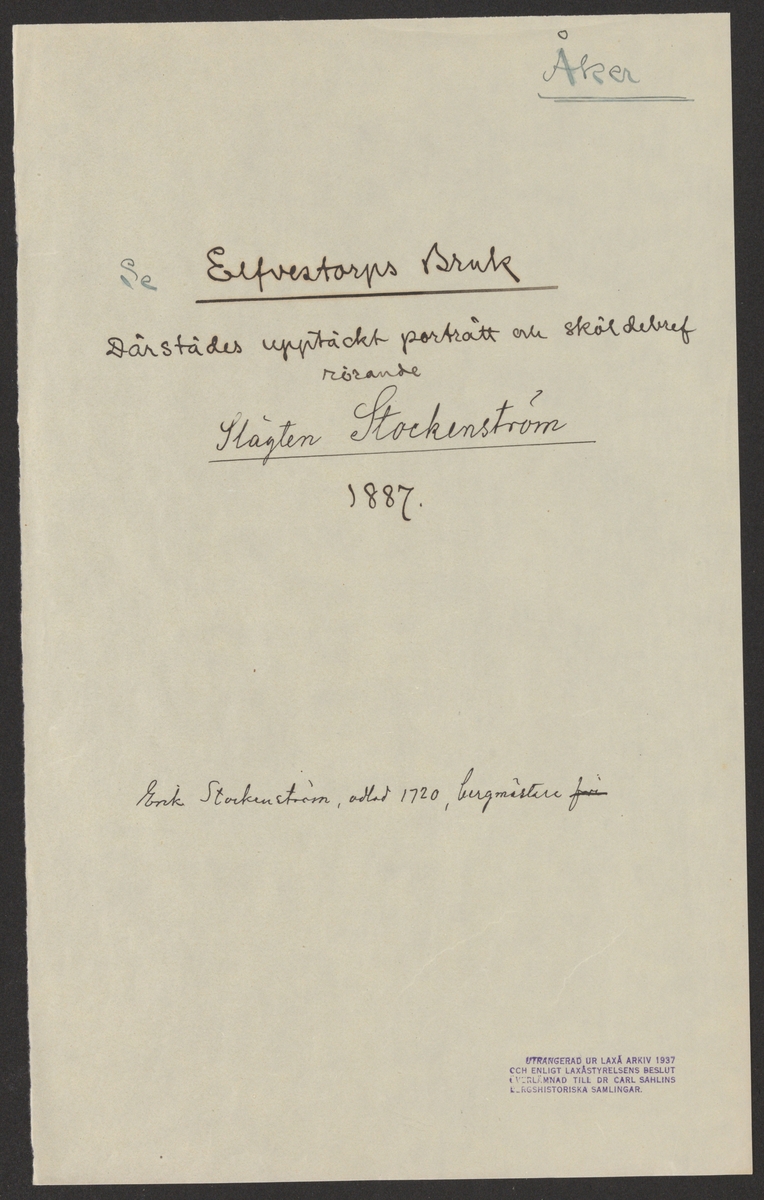 Åker
Se Elfvestorps Bruk
Därstädes upptäckt porträtt och sköldebref
rörande
Slägten Stockenström
1887.
Erik Stockenström, adlad 1720, bergmästare
UTRANGERAD UR LAXÅ ARKIV 1937
OCH ENLIGT LAXÅSTYRELSENS BESLUT
ÖVERLÄMNAD TILL DR CARL SAHLINS
BERGSHISTORISKA SAMLINGAR.